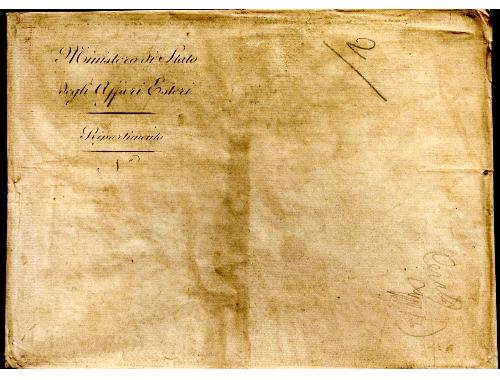 Ministero di Stato
degli Affari Esteri
Ripartimento
1º